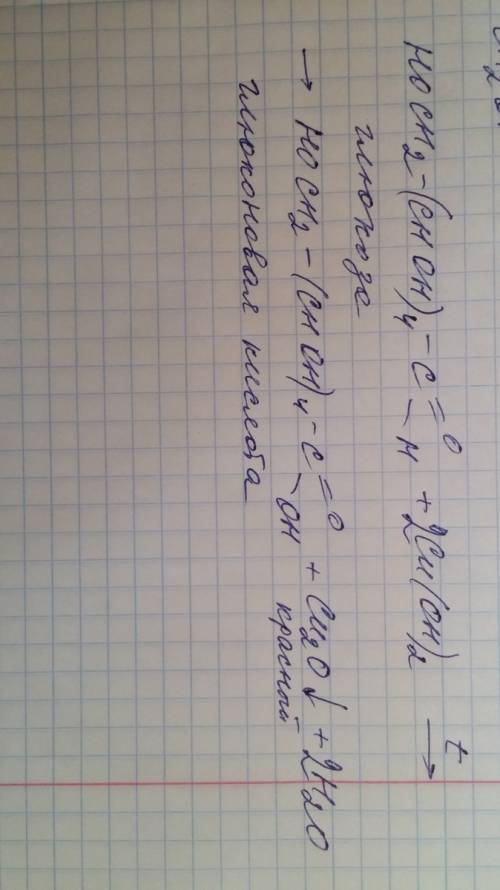 HOCH2-(CHOH)4-C=O-H + 2Cu(OH)2 t→
глюкоза
→ HOCH2-(CHOH)4-C=O-OH + Cu2O↓ + 2H2O
красный
глюконовая кислота